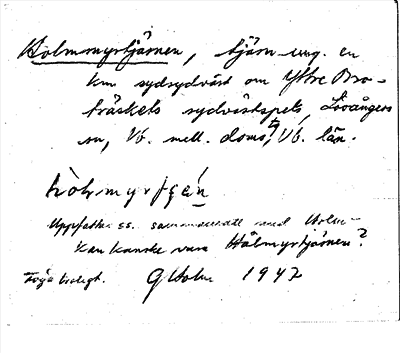 Holmmyrtjärnen, tjärn ung. en
km sydsydväst om Yttre Bro-
träskets sydvästspets, Lövångers
sn, Vb. mell. doms., Vb. län.
hòlmyrʃæ̀n
Uppfattas ss. sammansatt med Holm-
kan kanske vara Hålmyrtjärnen?
G Holm 1947